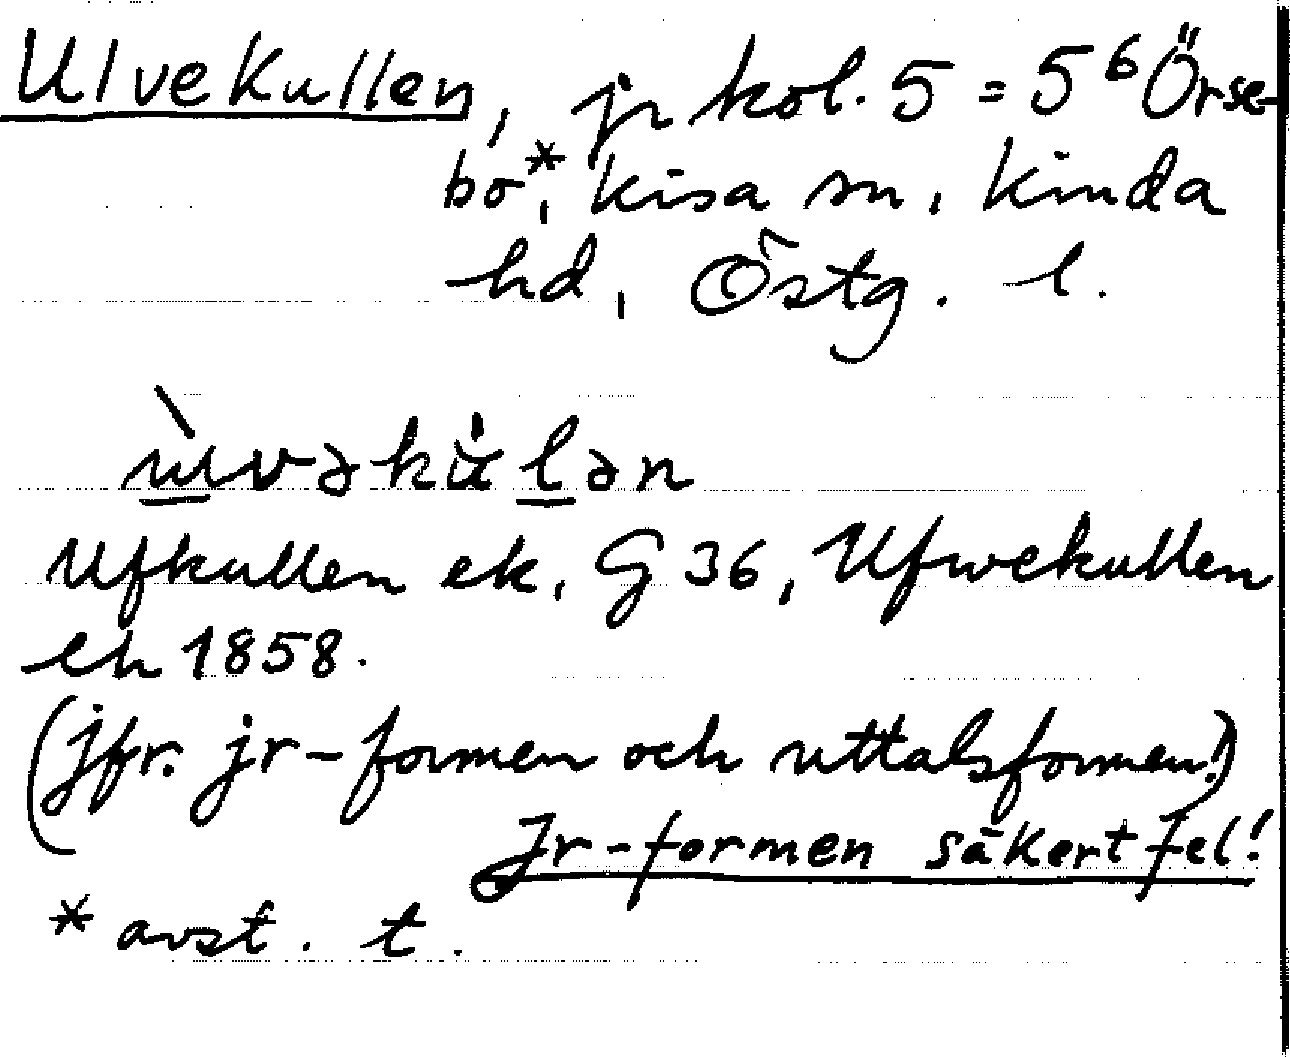 Ulvekullen, jr kol. 5 = 5⁶ Örse-
bo*, Kisa sn, Kinda
hd, Östg. l.
kù̈lən
Ufkullen ek, G 36, Ufwekullen
ek 1858.
(jfr. jr-formen och uttalsformen!)
Jr-formen säkert fel!
* avst. t.